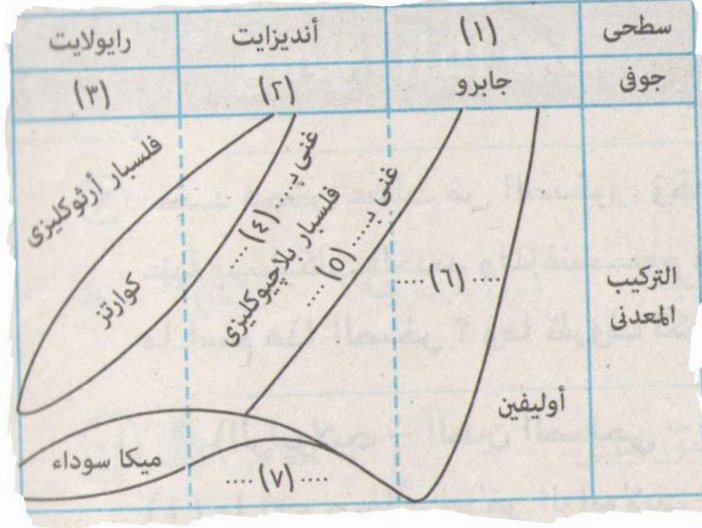 سطحى (١) أنديزايت رايولايت
جوفى جابرو (٢) (٣)
التركيب
المعدنى
فلسبار أرثوكليزى
كوارتز
غنى بـ.....(٤)....
فلسبار بلاچيوكليزى
غنى بـ.....(٥)....
....(٦)....
أوليفين
ميكا سوداء
....(٧)....